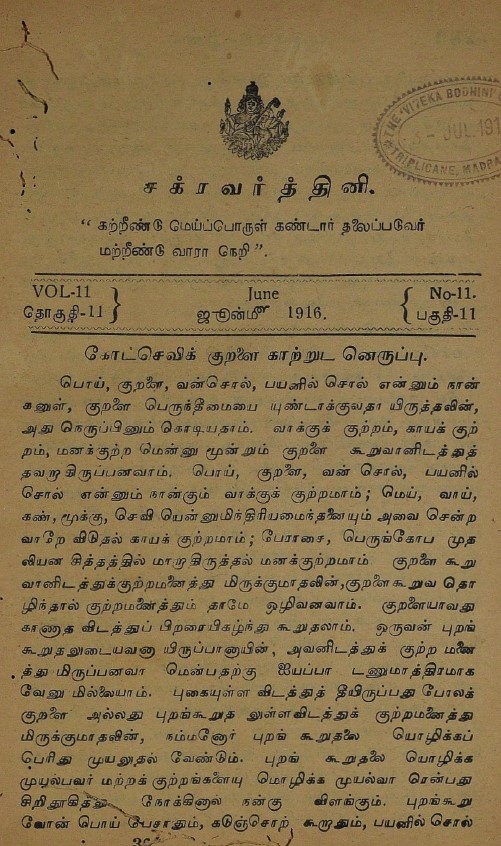 THE 'VIVEKA BODHINI'
JUL 191
TRIPLICANE, MADRA
சக்ரவர்த்தினி.
“ கற்றீண்டு மெய்ப்பொருள் கண்டார் தலைப்படுவேர்
மற்றீண்டு வாரா நெறி ”.
VOL-11 June No-11.
தொகுதி-11 ஜூன்மீ 1916. பகுதி-11
கோட்செவிக் குறளை காற்றுட னெருப்பு.
பொய், குறளை, வன்சொல், பயனில் சொல் என்னும் நான்
கனுள், குறளை பெருந்தீமையை யுண்டாக்குவதா யிருத்தலின்,
அது நெருப்பினும் கொடியதாம். வாக்குக் குற்றம், காயக் குற்
றம், மனக்குற்ற மென்னு மூன்றும் குறளை கூறுவானிடத்துத்
தவறாதிருப்பனவாம். பொய், குறளை, வன் சொல், பயனில்
சொல் என்னும் நான்கும் வாக்குக் குற்றமாம் ; மெய், வாய்,
கண், மூக்கு, செவி யென்னுமிந்திரியமைந்தனையும் அவை சென்ற
வாறே விடுதல் காயக் குற்றமாம் ; பேராசை, பெருங்கோப முத
லியன சித்தத்தில் மாறாதிருத்தல் மனக்குற்றமாம் குறளை கூறு
வானிடத்துக்குற்றமனைத்து மிருக்குமாதலின்,குறளைகூறுவ தொ
ழிந்தால் குற்றமனைத்தும் தாமே ஒழிவனவாம். குறளையாவது
காணாத விடத்துப் பிறரையிகழ்ந்து கூறுதலாம். ஒருவன் புறங்
கூறுதலுடையவனா யிருப்பானாயின், அவனிடத்துக் குற்ற மனை
த்து மிருப்பனவா மென்பதற்கு ஐயப்பா டணுமாத்திரமாக
வேனு மில்லையாம். புகையுள்ள விடத்துத் தீயிருப்பது போலக்
குறளை அல்லது புறங்கூறுத லுள்ளவிடத்துக் குற்றமனைத்து
மிருக்குமாதலின், நம்மனோர் புறங் கூறுதலை யொழிக்கப்
பெரிது முயலுதல் வேண்டும். புறங் கூறுதலை யொழிக்க
முயலுபவர் மற்றக் குற்றங்களையு மொழிக்க முயல்வா ரென்பது
சிறிதூகித்து நோக்கினால் நன்கு விளங்கும். புறங்கூறு
வோன் பொய் பேசாதும், கடுஞ்சொற் கூறாதும், பயனில் சொல்